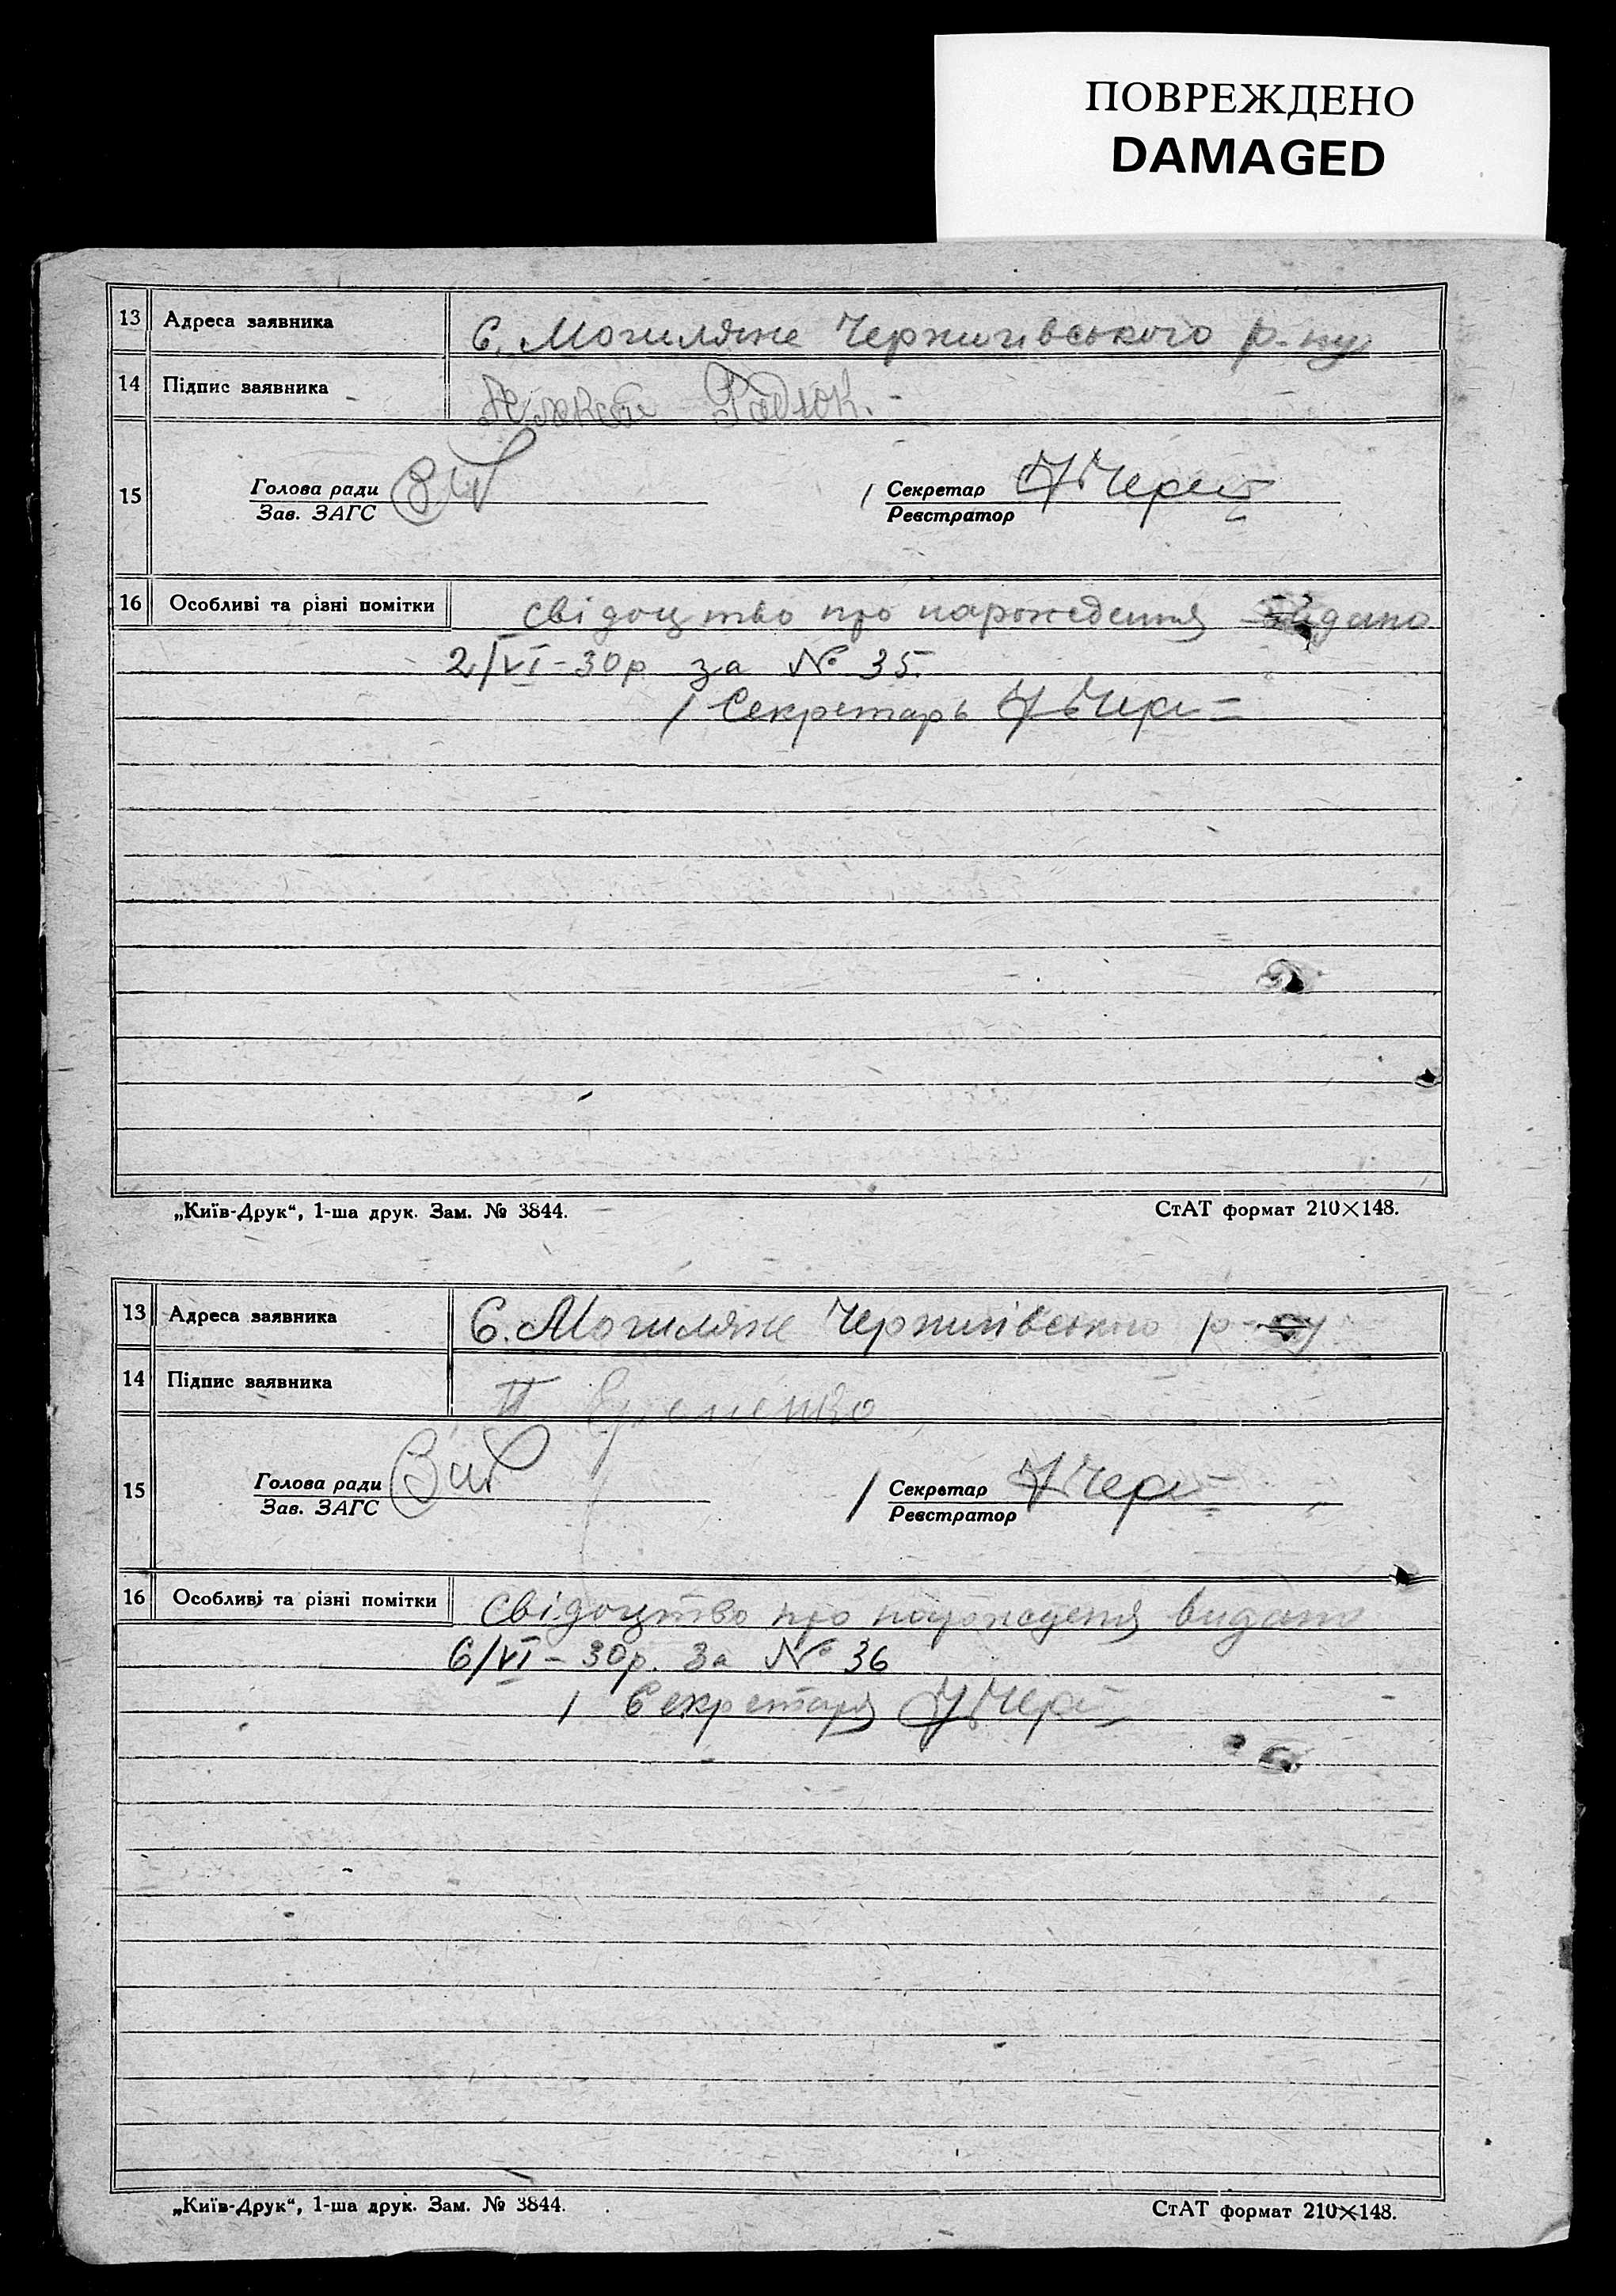 ПОВРЕЖДЕНО
DAMAGED
13 Адреса заявника С. Могиляне Чернигівського р-ну
14 Підпис заявника Радюк.
15 Голова ради Секретар
Зав. ЗАГС Реєстратор
16 Особливі та різні помітки Свідоцтво про народження видано
2/VI-30р за № 35.
Секретарь
„Київ-Друк“, 1-ша друк. Зам. № 3844. СтАТ формат 210×148.
13 Адреса заявника С. Могиляне Чернигівського р-ну
14 Підпис заявника П Еременко
15 Голова ради Секретар
Зав. ЗАГС Реєстратор
16 Особливі та різні помітки Свідоцтво про народженя видано
6/VI-30р. за № 36
Секретарь
„Київ-Друк“, 1-ша друк. Зам. № 3844. СтАТ формат 210×148.